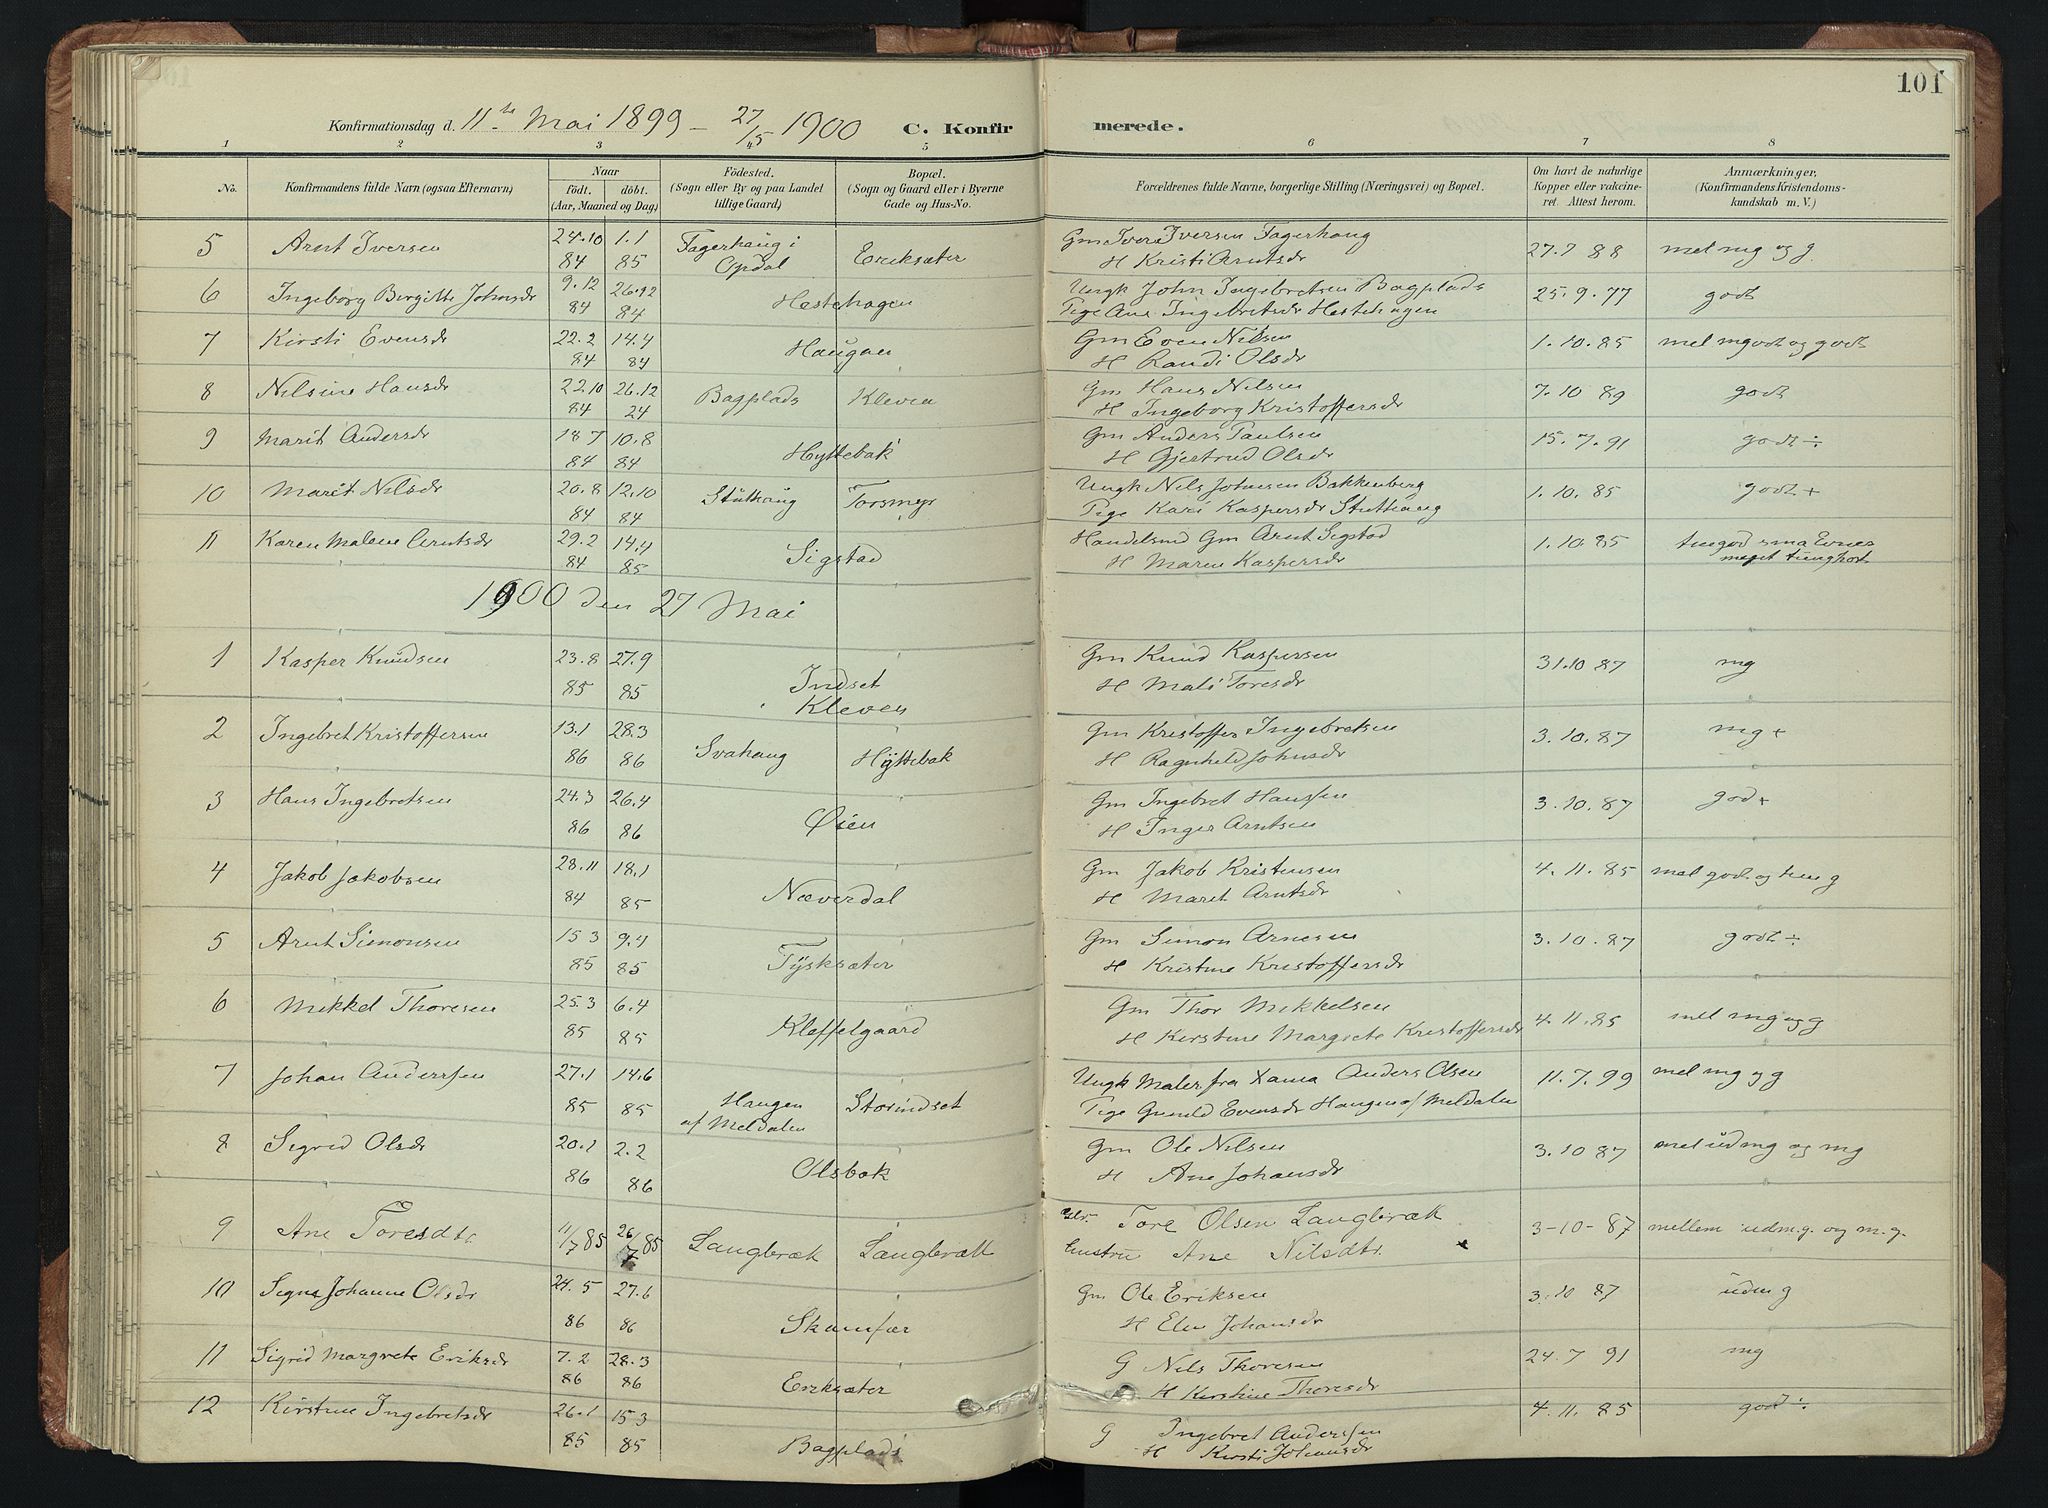 101
Konfirmationsdag d. 11te Mai 1899 - 27/5 1900 C. Konfirmerede.
1 2 3 4 5 6 7 8
No. Konfirmandens fulde Navn (ogsaa Efternavn) Naar födt. döbt. (Aar, Maaned og Dag) Födested. (Sogn eller By og paa Landet tillige Gaard) Bopæl. (Sogn og Gaard eller i Byerne Gade og Hus-No. Forældrenes fulde Navne, borgerlige Stilling (Næringsvei) og Bopæl. Om havt de naturlige Kopper eller vakcineret. Attest herom. Anmærkninger, (Konfirmandens Kristendomskundskab m. V.)
5 Arnt Iversen 24.10 1.1 Fagerhaug i Eriksæter Gm Iver Iversen Fagerhaug 27.7 88 mel mg og g
84 85 Opdal H Kristi Arntsdr
6 Ingeborg Birgitte Johnsdr 9.12 26.12 Hestehagen Ungk John Ingebretsen Bagplads 25.9.77 godt
84 84 Pige Ane Ingebretsdr Hestehagen
7 Kirsti Evensdr 22.2 14.4 Haugan Gm Even Nilsen 1.10.85 mel mgodt og godt
84 84 H Randi Olsdr
8 Nilsine Hansdr 22.10 26.12 Bagplads Kleven Gm Hans Nilsen 7.10 89 godt
84 24 H Ingeborg Kristoffersdr
9 Marit Andersdr 18 7 10.8 Hyttebak Gm Anders Paulsen 15.7.91 godt ÷
84 84 H Gjertrud Olsdr
10 Marit Nilsdr 20.8 12.10 Stuthaug Torsmyr Ungk Nils Johnsen Bakkenberg 1.10.85 godt +
84 84 Pige Kari Kaspersdr Stuthaug
11 Karen Malene Arntsdr 29.2 14.4 Sigstad Handelsmd Gm Arnt Sigstad 1.10.85 smaa Evner
84 85 H Maren Kaspersdr meget tunghørt
1900 den 27 Mai
1 Kasper Knudsen 23.8 27.9 Indset Gm Knud Kaspersen 31.10 87 mg
85 85 Kleven H Mali Toresdr
2 Ingebret Kristoffersen 13.1 28.3 Svahaug Hyttebak Gm Kristoffer Ingebretsen 3.10.87 mg +
86 86 H Ragnheld Johnsdr
3 Hans Ingebretsen 24.3 26.4 Øien Gm Ingebret Hanssen 3.10.87 god +
86 86 H Inger Arntsen
4 Jakob Jakobsen 28.11 18.1 Næverdal Gm Jakob Kristensen 4.11.85 mel godt og tem g
84 85 H Maret Arntsdr
5 Arnt Simonsen 15 3 9.4 Tysksæter Gm Simon Arnesen 3.10.87 godt ÷
85 85 H Kristine Kristoffersdr
6 Mikkel Thoresen 25.3 6.4 Kleffelgaard Gm Thor Mikkelsen 4.11.85 mel mg og g
85 85 H Kerstine Margrete Kristoffersdr
7 Johan Anderssen 27.1 14.6 Haugen Storindset Ungk Maler fra Anders Olsen 11.7.99 mel mg og g
85 85 af Meldalen Pige Gunild Evensdr Haugen af Meldalen
8 Sigrid Olsdr 20.1 2.2 Olsbak Gm Ole Nilsen 3.10 87 mel udmg og mg
86 86 H Ane Johansdr
9 Ane Toresdtr. 11/7 85 26/7 85 Langbræk Langbræk Tore Olsen Langbræk 3-10-87 mellem udm.g. og m.g.
Hustru Ane Nilsdtr.
10 Signe Johanne Olsdr 24.5 27.6 Skamfær Gm Ole Eriksen 3.10 87 udm g
86 86 H Elen Johansdr
11 Sigrid Margrete Eriksdr 7.2 28.3 Eriksæter G Nils Thoresen 24.7 91 mg
86 86 H Kerstine Thoresdr
12 Kirstine Ingebretsdr 26.1 15 3 Bagplads G Ingebret Anderssen 4.11.85 god ÷
85 85 H Kirsti Johansdr